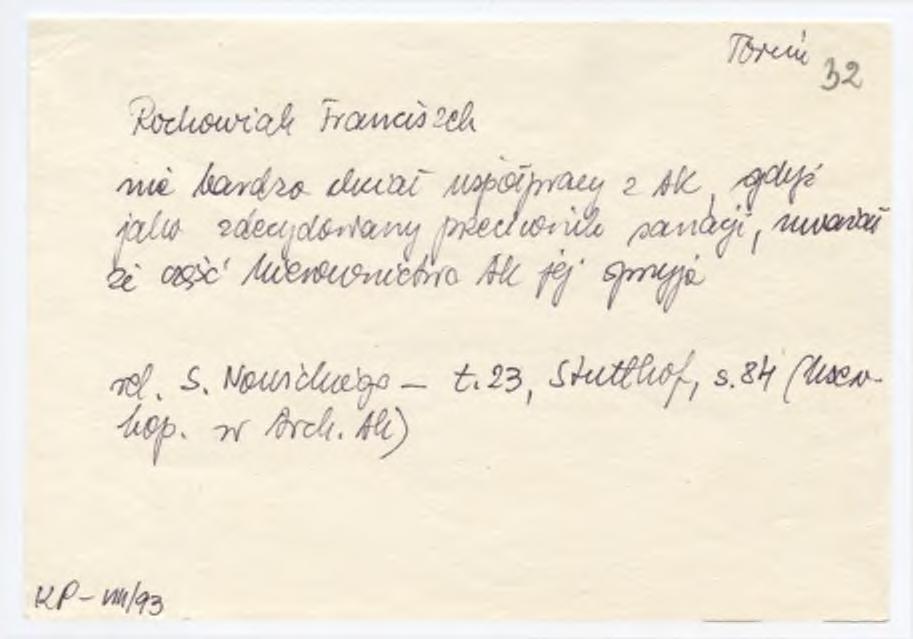 Toruń 32
Rochowiak Franciszek
nie bardzo chciał współpracy z AK, gdyż
jako zdecydowany przeciwnik sanacji, uważał
że część kierownictwa AK jej sprzyja
rel. S. Nowickiego – t. 23, Stutthof, s. 84 (
kop. w Arch. AK)
KP – VIII/93